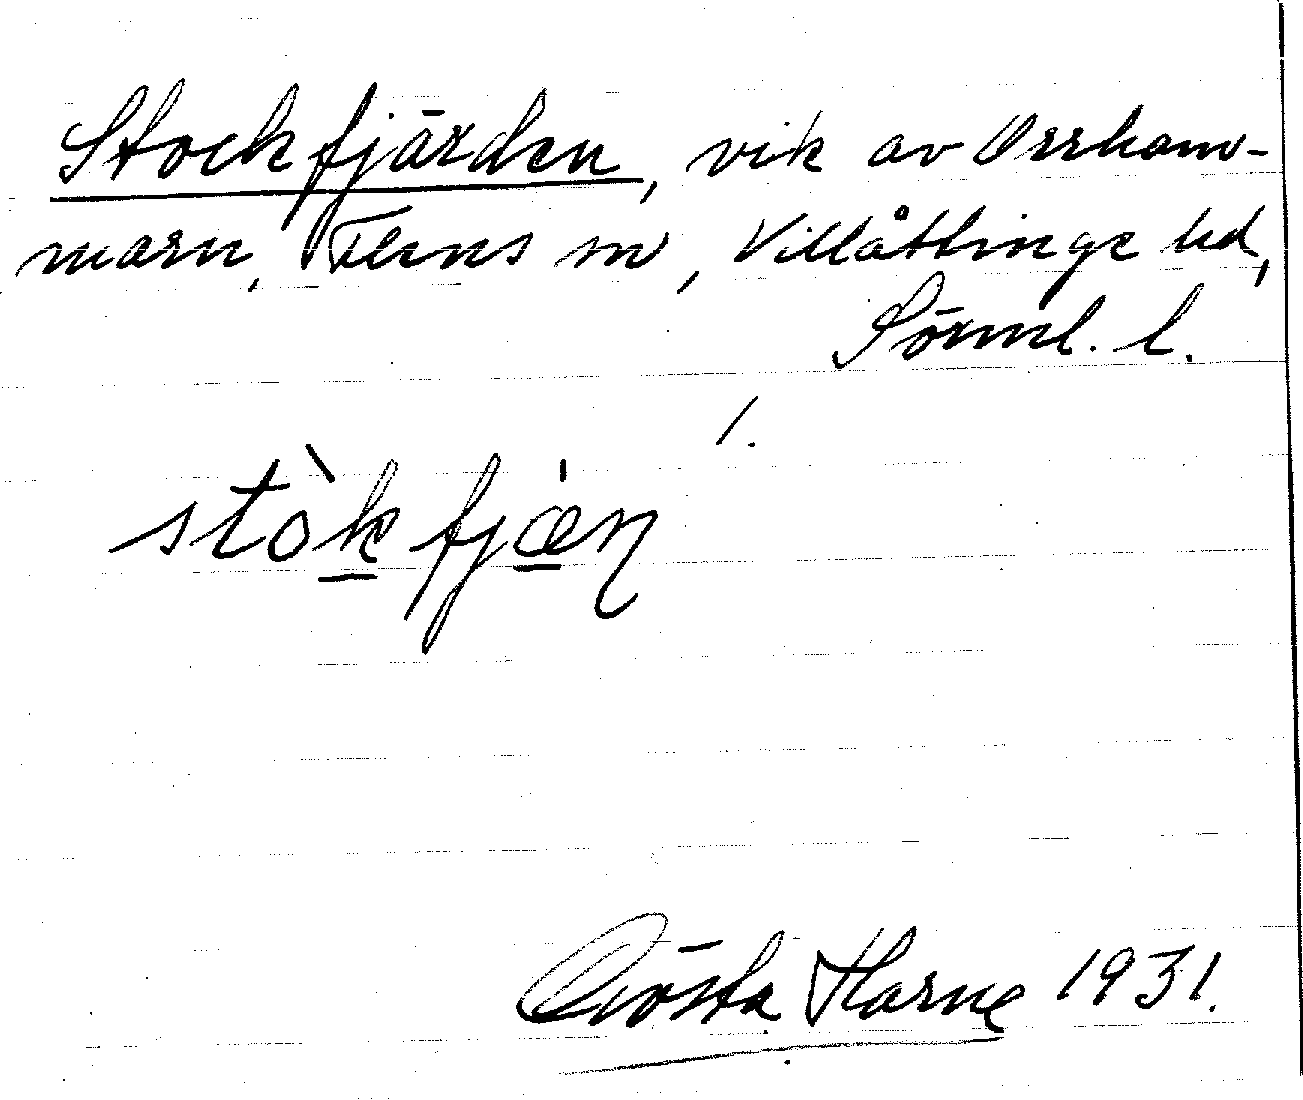 Stockfjärden, vik av Orrham-
marn, Flens sn, Villåttinge hd,
Sörml. l.
1.
stòkfjæ̀n
Gösta Harne 1931.